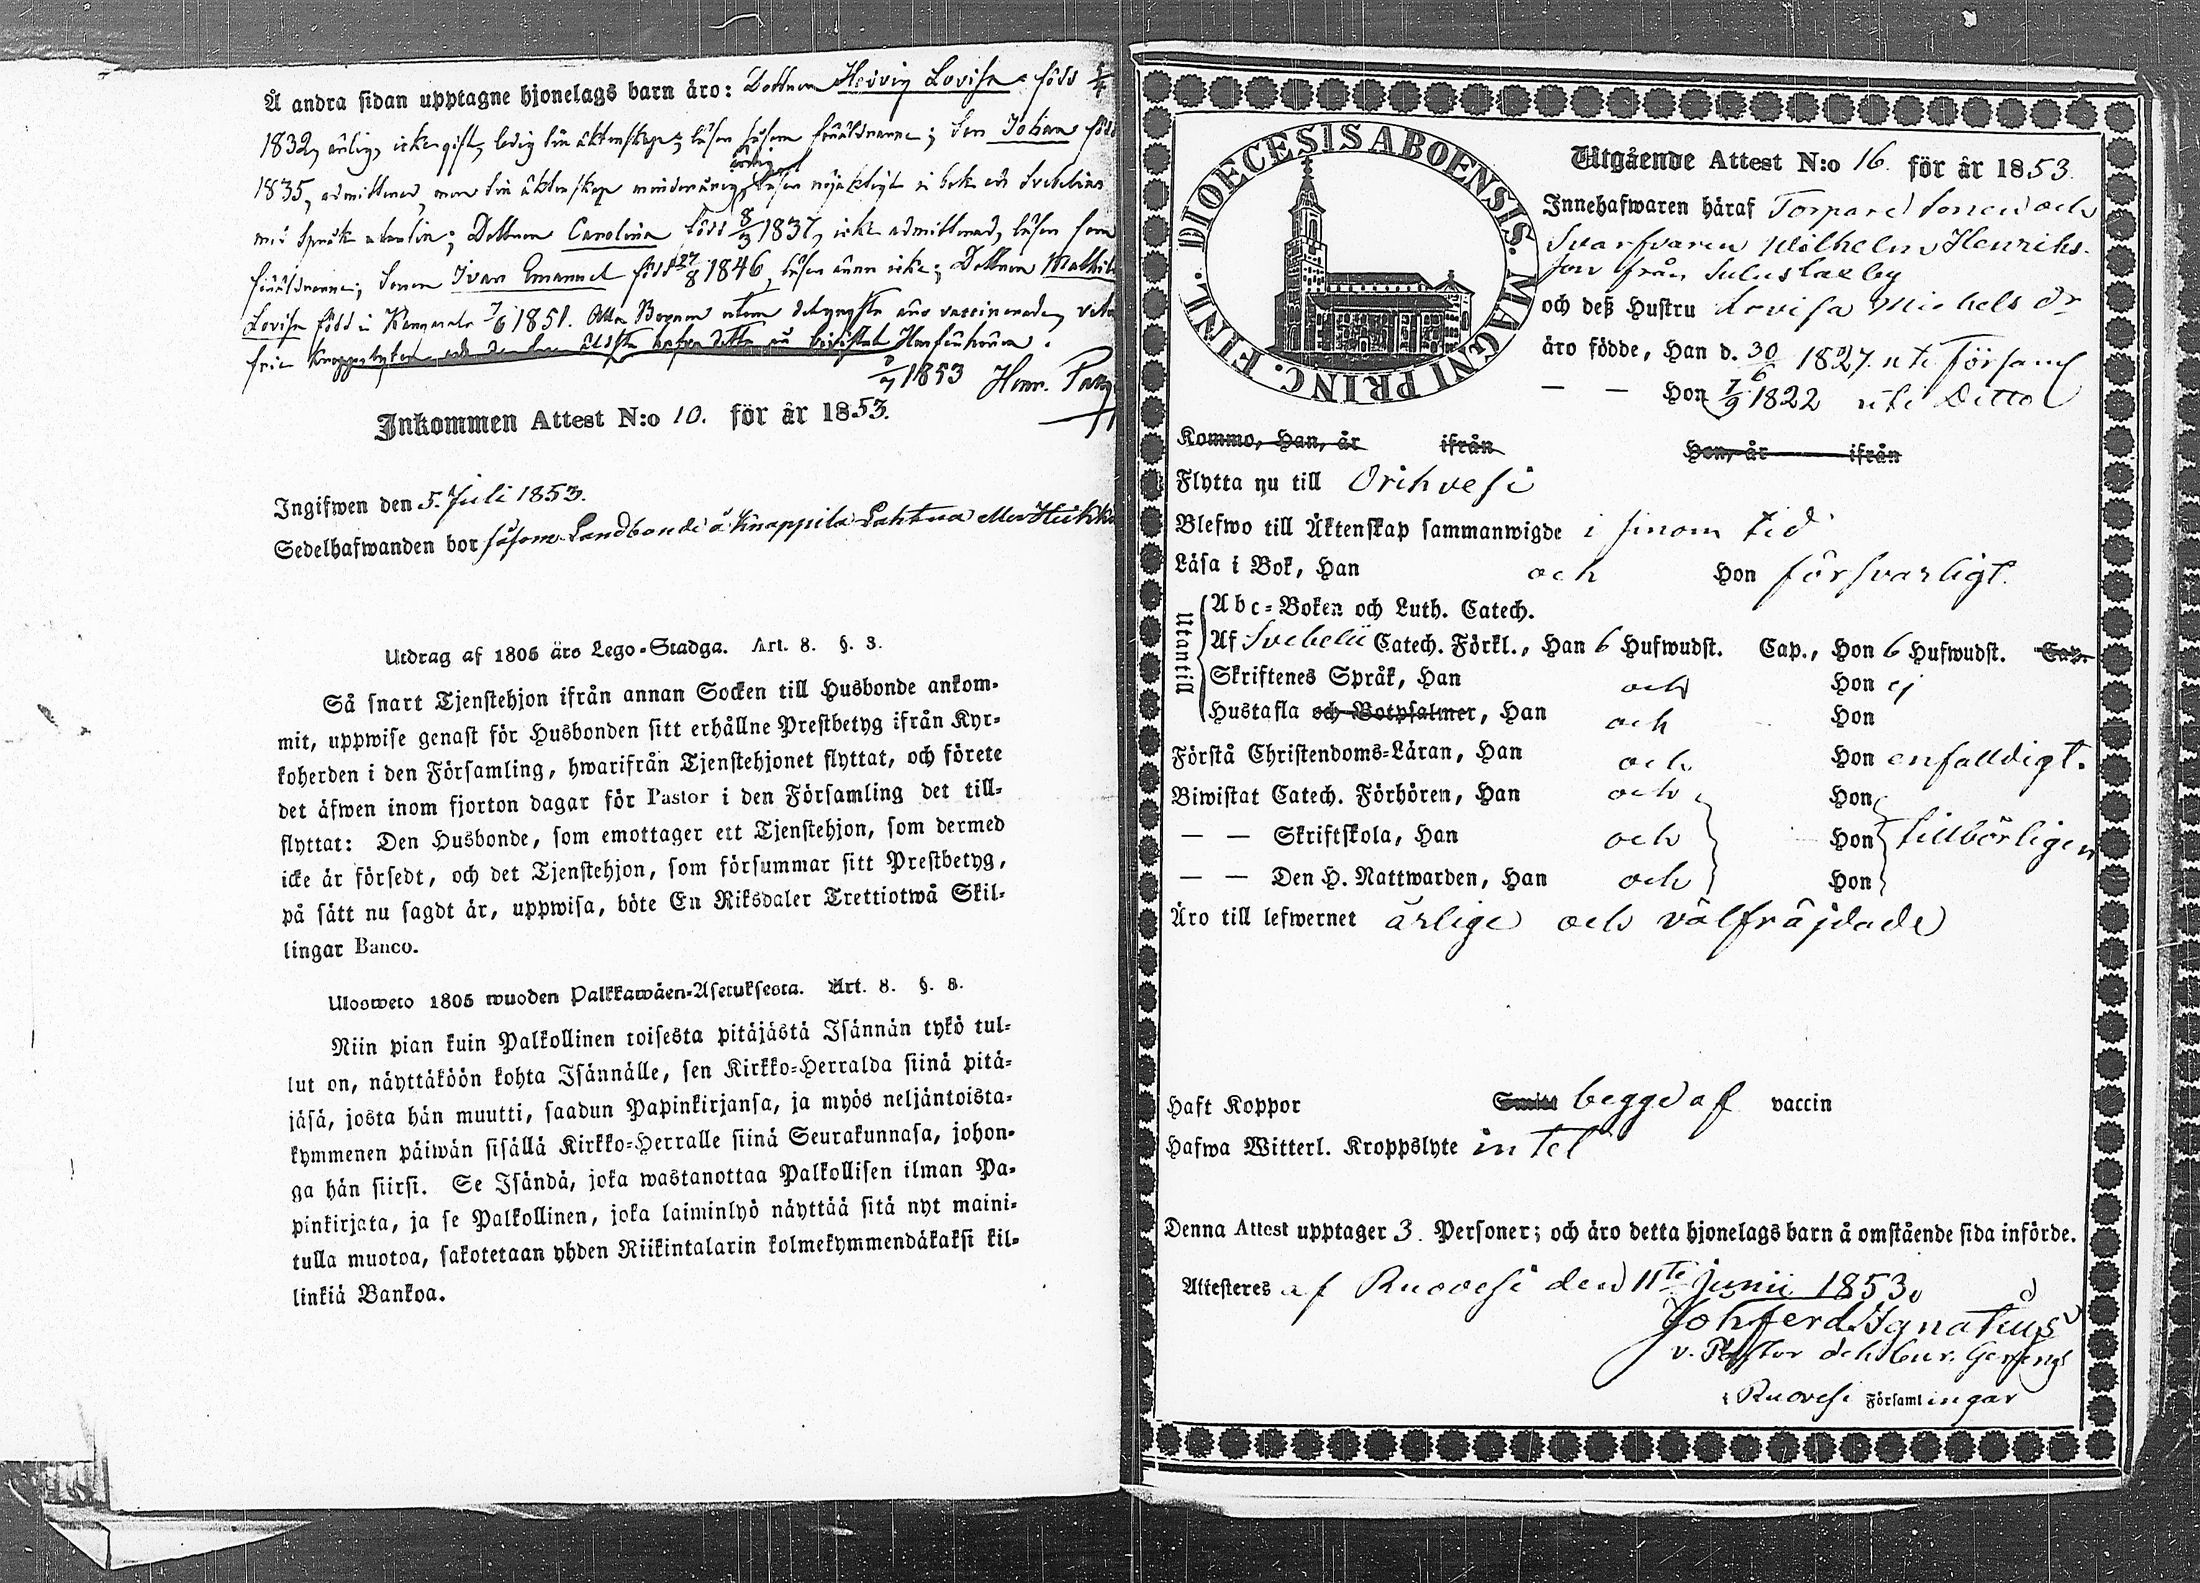 Å andra sidan upptagne hjonelags barn äro: Dottren Hedvig Lovisa född
1832, ärlig, icke gift, ledig för äktenskap; läser såsom föräldrarne; Son Johan född
1835, admitterad, men för äktenskap minderårig, ärlig, läser nöjaktigt i bok och Svebelius
med språk utantill; Dottren Carolina född 8/3 1837, icke admitterad, läser som
föräldrarne; Sonen Ivar Emanuel född 27/8 1846, läser ännu icke; Dottren Mathilda
Lovisa född i Kangasala 7/6 1851. Alla Barnen utom det yngsta äro vaccinerade,
fria kroppslyten
1853 Henr.
Inkommen Attest N:o 10. för år 1853.
Ingifwen den 5. Juli 1853.
Sedelhafwanden bor såsom Landbonde å Knappila Lahtua eller
Utdrag af 1805 års Lego-Stadga. Art. 8. §. 3.
Så snart Tjenstehjon ifrån annan Socken till Husbonde ankom-
mit, uppwise genast för Husbonden sitt erhållne Prestbetyg ifrån Kyr-
koherden i den Församling, hwarifrån Tjenstehjonet flyttat, och förete
det äfwen inom fjorton dagar för Pastor i den Församling det till-
flyttat: Den Husbonde, som emottager ett Tjenstehjon, som dermed
icke är försedt, och det Tjenstehjon, som försummar sitt Prestbetyg,
på sätt nu sagdt är, uppwisa, böte En Riksdaler Trettiotwå Skil-
lingar Banco.
Ulosweto 1805 wuoden Palkkawäen-Asetuksesta. Art. 8. §. 3.
Niin pian kuin Palkollinen toisesta pitäjästä Isännän tykö tul-
lut on, näyttäköön kohta Isännälle, sen Kirkko-Herralda siinä pitä-
jäsä, josta hän muutti, saadun Papinkirjansa, ja myös neljäntoista-
kymmenen päiwän sisällä Kirkko-Herralle siinä Seurakunnasa, johon-
ga hän siirsi. Se Isändä, joka wastanottaa Palkollisen ilman Pa-
pinkirjata, ja se Palkollinen, joka laiminlyö näyttää sitä nyt maini-
tulla muotoa, sakotetaan yhden Riikintalarin kolmekymmendäkaksi kil-
linkiä Bankoa.
DIOECESIS ABOENSIS. MAGNI PRINC. FINL.
Utgående Attest N:o 16. för år 1853.
Innehafwaren häraf Torpare Sonen och
Svarfvaren Wilhelm Henriks-
son från by
och deß Hustru Lovisa Michels dr
äro födde, Han d. 30/6 1827. uti Församl
— — Hon 7/9 1822 uti Ditto
Kommo, Han, år ifrån Hon, år ifrån
Flytta nu till Orihvesi
Blefwo till Äktenskap sammanwigde i sinom tid
Läsa i Bok, Han och Hon försvarligt.
Utantill
Abc-Boken och Luth. Catech.
Af Svebelii Catech. Förkl., Han 6 Hufwudst. Cap., Hon 6 Hufwudst. Cap.
Skriftenes Språk, Han och Hon ej
Hustafla och Botpsalmer, Han och Hon
Förstå Christendoms-Läran, Han och Hon enfalldigt.
Biwistat Catech. Förhören, Han och Hon
— — Skriftskola, Han och Hon tillbörligen
— — Den H. Nattwarden, Han och Hon
Äro till lefwernet ärlige och välfräjdade
Haft Koppor Smitt begge af vaccin
Hafwa Witterl. Kroppslyte intet
Denna Attest upptager 3. Personer; och äro detta hjonelags barn å omstående sida införde.
Attesteres af Ruovesi den 11te Junii 1853.
Joh Ferd. Ignatius
v. Pastor
i Ruovesi Församlingar